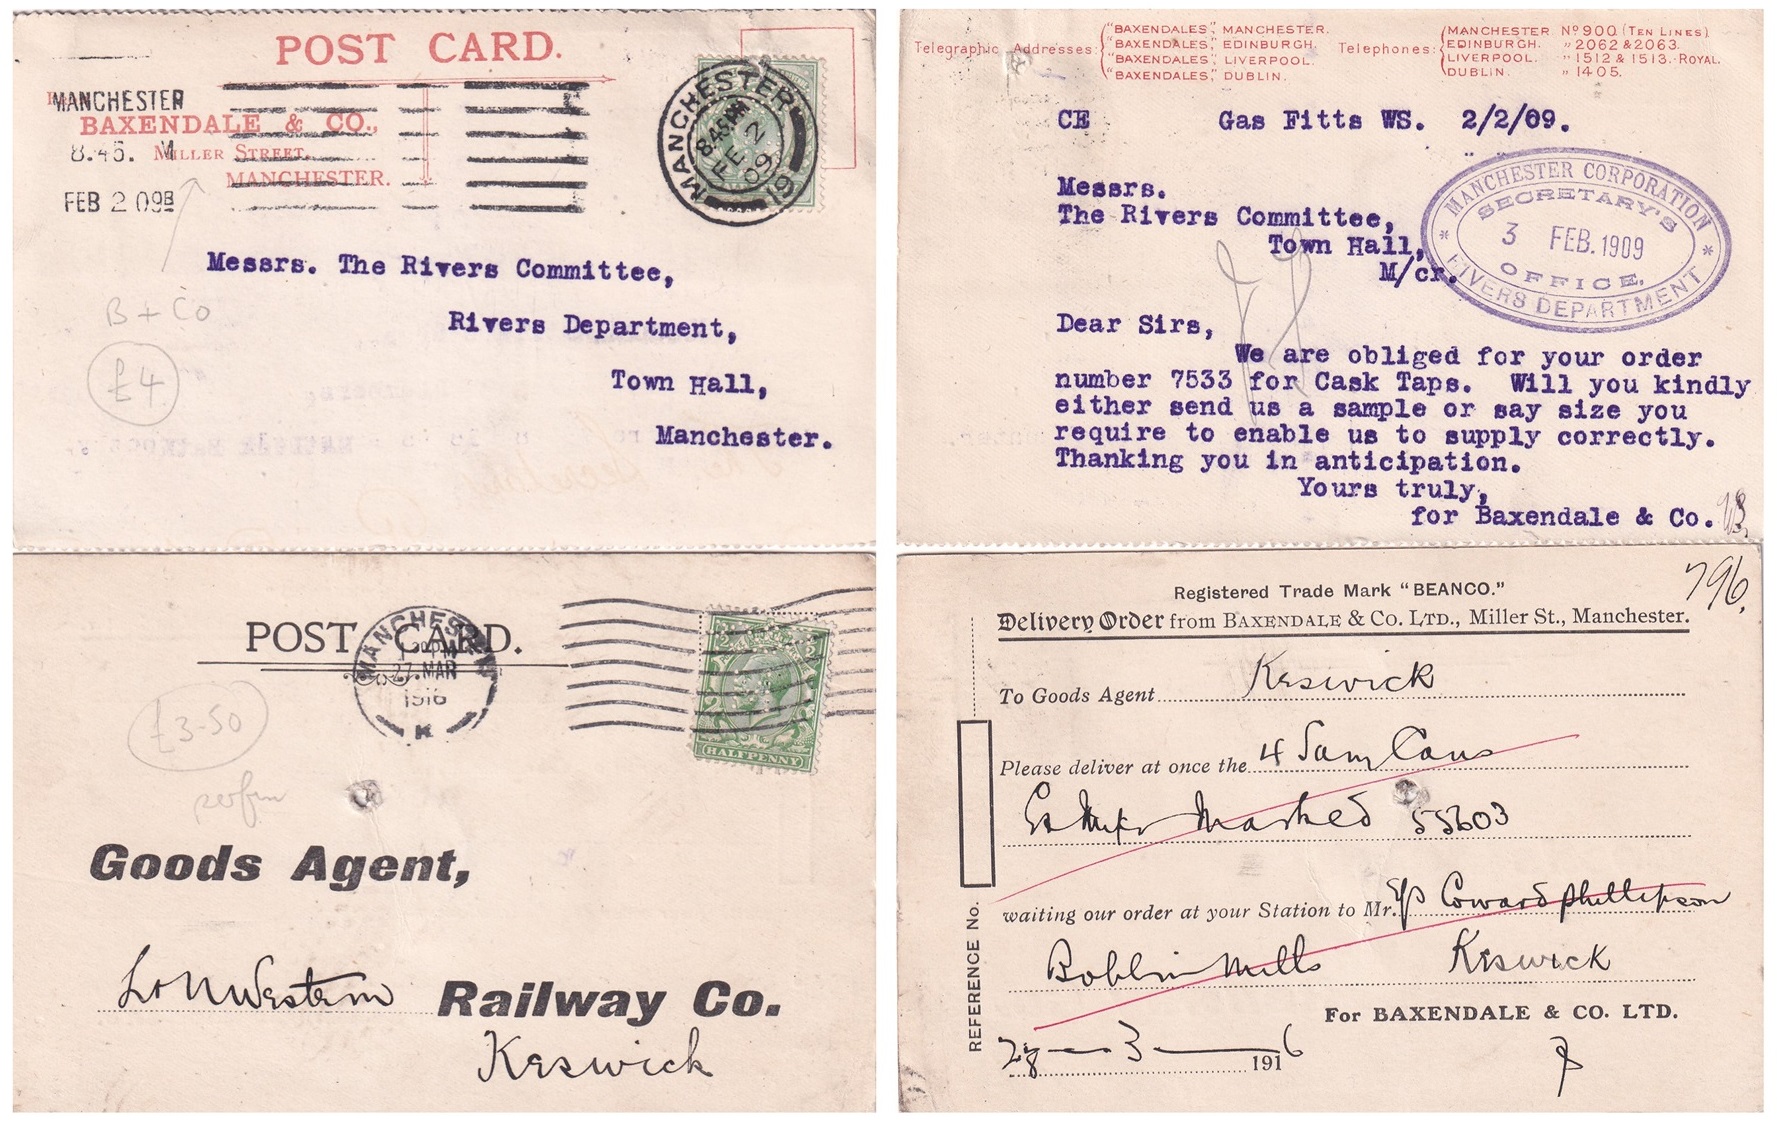 POST CARD.
MANCHESTER
BAXENDALE & CO.,
8.45. M
MILLER STREET,
MANCHESTER.
FEB 2 09B
MANCHESTER
8.45PM
FE 2
09
19
Messrs. The Rivers Committee,
Rivers Department,
Town Hall,
Manchester.
B + Co
£4
Telegraphic Addresses:
"BAXENDALES", MANCHESTER.
"BAXENDALES", EDINBURGH.
"BAXENDALES", LIVERPOOL.
"BAXENDALES", DUBLIN.
Telephones:
MANCHESTER Nº 900 (TEN LINES)
EDINBURGH. " 2062 & 2063.
LIVERPOOL. " 1512 & 1513. ROYAL.
DUBLIN. " 1405.
CE Gas Fitts WS. 2/2/09.
Messrs.
The Rivers Committee,
Town Hall,
M/cr.
MANCHESTER CORPORATION
SECRETARY'S
3 FEB. 1909
OFFICE.
RIVERS DEPARTMENT
Dear Sirs,
We are obliged for your order
number 7533 for Cask Taps. Will you kindly
either send us a sample or say size you
require to enable us to supply correctly.
Thanking you in anticipation.
Yours truly,
for Baxendale & Co.
POST CARD.
MANCHESTER
27 MAR
1916
K
HALFPENNY
£3-50
perfin
Goods Agent,
L & N Western Railway Co.
Keswick
796.
Registered Trade Mark "BEANCO."
Delivery Order from BAXENDALE & CO. LTD., Miller St., Manchester.
To Goods Agent Keswick
Please deliver at once the 4 Jam Cans
Marked 55603
waiting our order at your Station to Mr. Coward Phillipson
Bobbin Mills Keswick
REFERENCE No.
For BAXENDALE & CO. LTD.
28 - 3 - 1916